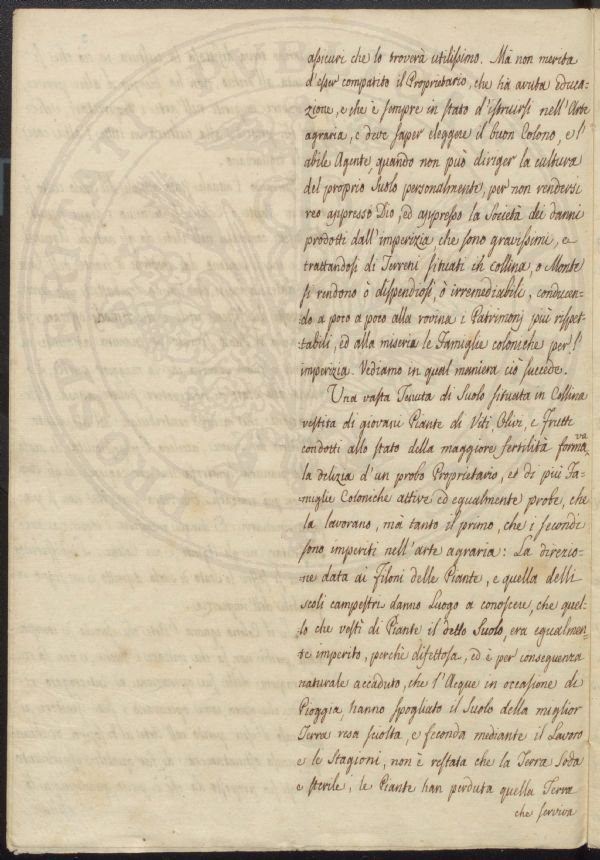 assicuri che lo troverà utilissimo. Mà non merita
d'esser compatito il Proprietario, che hà avuta Educa-
zione, e che è sempre in stato d'istruirsi nell'Arte
agraria, e deve saper eleggere il buon Colono, e l'
abile Agente, quando non può diriger la cultura
del proprio Suolo personalmente, per non rendersi
reo appresso Dio, ed appresso la Società dei danni
prodotti dall'imperizia, che sono gravissimi, e
trattandosi di Terreni situati in Collina, o Monte
si rendono ò dispendiosi, ò irremediabili, conducen-
do a poco a poco alla rovina i Patrimonj più rispet-
tabili, ed alla miseria le Famiglie coloniche per l'
imperizia. Vediamo in qual maniera ciò succede.
Una vasta Tenuta di Suolo situata in Collina
vestita di giovani Piante di Viti, Olivi, e Frutti
condotti allo stato della maggiore fertilità formava
la delizia d'un probo Proprietario, e di più Fa-
miglie Coloniche attive ed egualmente probe, che
la lavorano, mà tanto il primo, che i secondi
sono imperiti nell'arte agraria: La direzio-
ne data ai filoni delle Piante, e quella delli
scoli campestri danno Luogo a conoscere, che quel-
lo che vestì di Piante il detto Suolo, era egualmen
te imperito, perchè difettosa, ed è per conseguenza
naturale accaduto, che l'Acque in occasione di
Pioggia, hanno spogliato il Suolo della miglior
Terra resa sciolta, e feconda mediante il Lavoro
e le Stagioni, non è restata che la Terra Soda
e sterile, le Piante han perduta quella Terra
che serviva